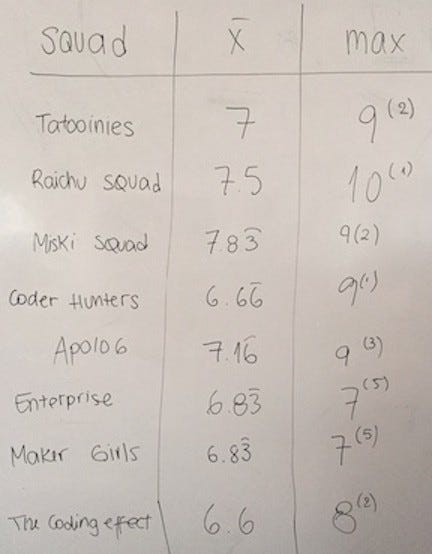 Squad x̄ max
Tatooinies 7 9 (2)
Raichu squad 7.5 10 (1)
Miski Squad 7.83̄ 9(2)
Coder Hunters 6.66̄ 9(1)
Apolo 6 7.16̄ 9 (3)
Enterprise 6.83̄ 7 (5)
Maker Girls 6.83̄ 7 (5)
The Coding effect 6.6 8 (2)